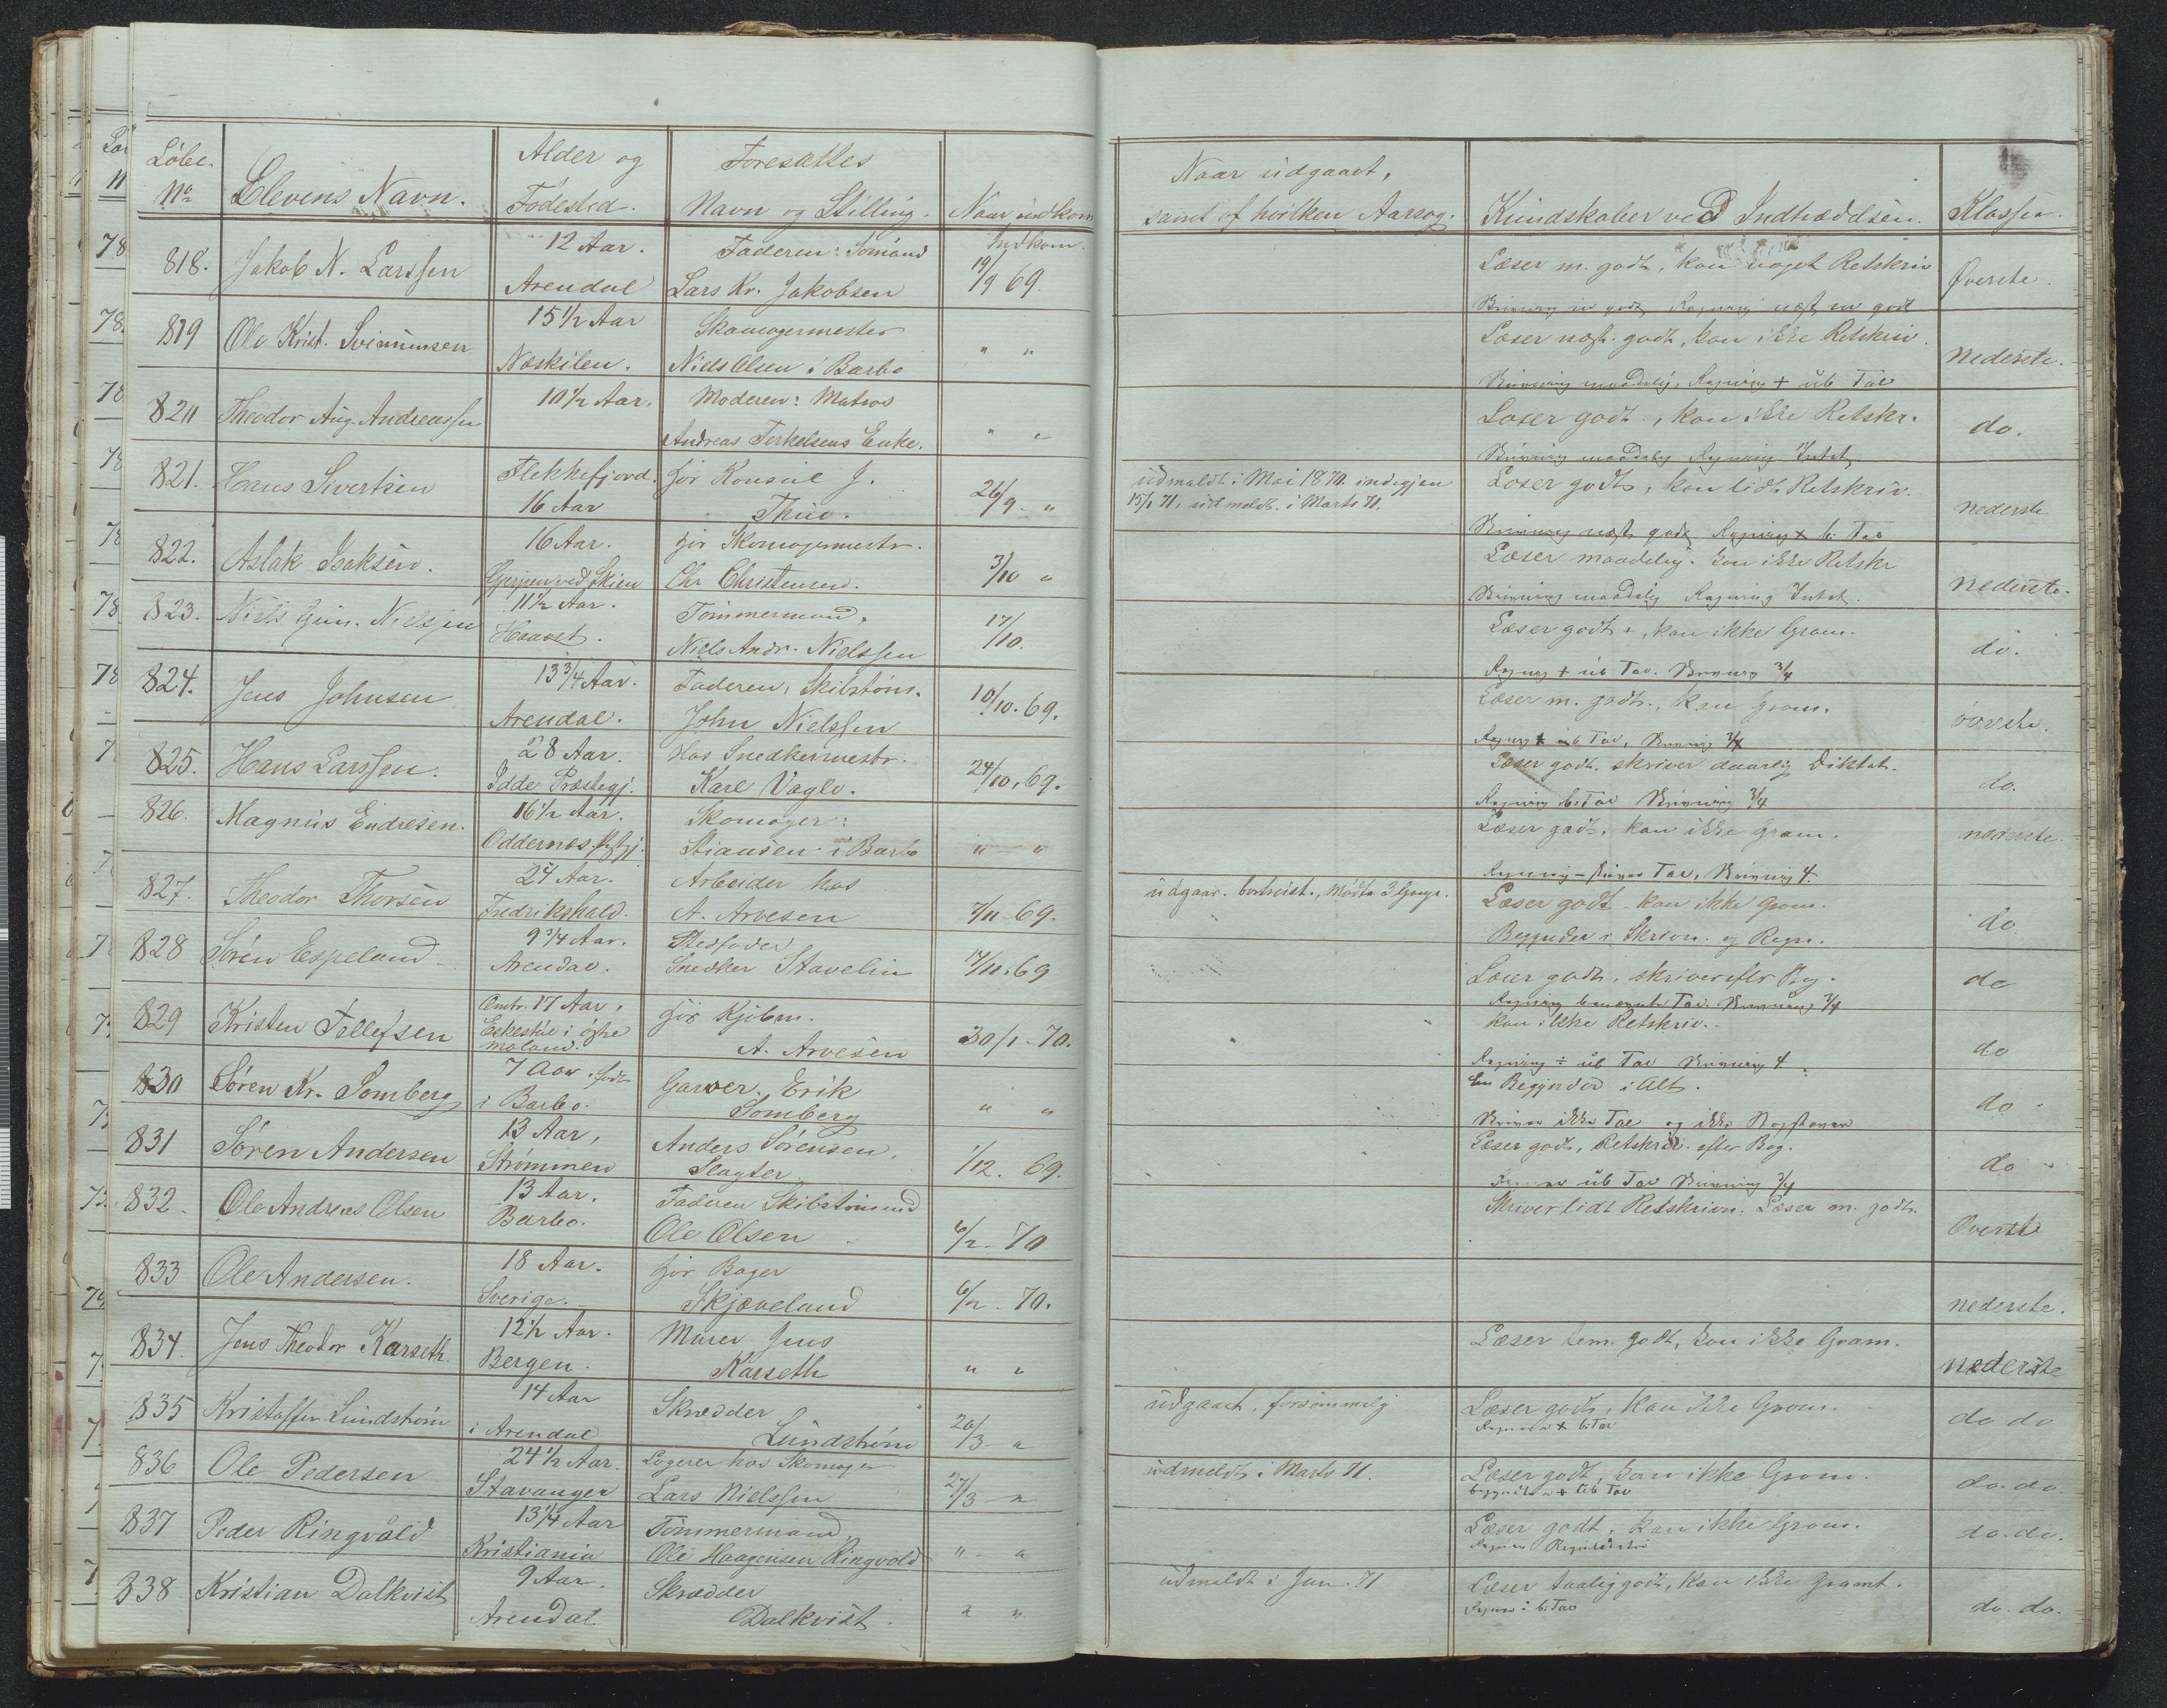 Løbe- No
Elevens Navn.
Alder og Fødested.
Foresattes Navn og Stilling.
Naar indkom
Naar udgaaet, samt af hvilken Aarsag.
Kundskaber ved Indtrædelsen.
Klasse.
818. Jakob N. Larssen
12 Aar. Arendal
Faderen: Sømand
Lars Kr. Jakobsen
Indkom. 19/9 69.
Læser m. godt, kan noget Retskriv
Øverste.
819 Ole Krist.
15 1/2 Aar
Næskilen.
Skomagermester
Niels Olsen i Barbo
" "
Læser næst. godt, kan ikke Retskriv.
Skrivning maadelig, Regning + ub Tal
nederste.
820 Theodor Aug. Andreassen
10 1/2 Aar.
Moderen: Matros
Andreas Terkelsens Enke.
" "
Læser godt, kan ikke Retskr.
Skrivning maadelig Regning Intet
do.
821. Hans Sivertsen
Flekkefjord.
16 Aar
for Konsul J.
26/9 "
udmeldt i Mai 1870. indigjen
15/1 71. udmeldt i Marts 71.
Læser godt, kan lidt Retskriv.
nederste
822. Aslak Isaksen.
16 Aar.
Gjerpen ved Skien
for Skomagermestr.
Chr Christensen.
3/10 "
Læser maadelig. kan ikke Retskr
Skrivning maadelig Regning Intet.
nederste.
823. Niels Gun. Nielssen
11 1/2 Aar.
Tømmermand,
Niels Andr. Nielssen
17/10.
Læser godt +, kan ikke Gram.
Regning + ub Tal. Skrivning 3/4
do.
824. Jens Johnsen
13 3/4 Aar.
Arendal.
Faderen, Skibstøm.
John Nielssen
10/10. 69.
Læser m. godt., kan Gram.
øverste.
825. Hans Larssen.
28 Aar.
Idde Præstegj.
Hos Snedkermestr.
Karl Vagle.
24/10. 69.
Læser godt. skriver daarlig Diktat.
Regning b. Tal Skrivning 3/4
do.
826. Magnus Endresen.
16 1/2 Aar.
Oddernæs
Skomager:
Stiansen i Barbo
" "
Læser godt, kan ikke Gram.
nederste
827. Theodor Thorsen
24 Aar.
Fredrikshald.
Arbeider hos
A. Arvesen
7/11 69.
udgaar. bortreist., Mødte 3 Gange.
Læser godt kan ikke Gram.
Begynder i Skrivn. og Regn.
do.
828 Søren Espeland
9 3/4 Aar.
Arendal.
Stedfader
Snedker Stavelin
14/11. 69
Læser godt, skriver efter Bog.
do
829 Kristen Tellefsen
Omtr. 17 Aar,
i østre
Moland.
for Kjøbm.
A. Arvesen
30/1. 70.
Kan ikke Retskriv.
Regning ÷ ub Tal Skrivning 4
do
830 Søren Kr. Somberg
7 Aar. født
i Barbo.
Garver Erik
Somberg
" "
En Begynder i Alt.
Skriver ikke Tal og ikke Bogstaver
do
831 Søren Andersen
13 Aar,
Strømmen
Anders Sørensen,
Slagter
1/12. 69.
Læser godt, Retskriv. efter Bog.
ub Tal Skrivning 3/4
do
832. Ole Andreas Olsen
13 Aar.
Barbo.
Faderen Skibstømmd
Ole Olsen
6/2. 70
Skriver lidt Retskrivn. Læser m. godt.
Øverste
833 Ole Andersen.
18 Aar.
Sverige.
for Bager
Skjæveland
6/2. 70.
nederste.
834. Jens Theodor Karseth
12 1/2 Aar.
Bergen.
Murer Jens
Karseth
" "
Læser tem. godt, kan ikke Gram.
nederste
835 Kristoffer Lundstrøm
14 Aar
i Arendal
Skrædder
Lundstrøm
20/3 "
udgaaet, forsømmelig
Læser godt, kan ikke Gram.
do do
836 Ole Pedersen
24 1/2 Aar.
Stavanger
Logerer hos Skomager
Lars Nielssen
27/3 "
udmeldt i Marts 71.
Læser godt, kan ikke Gram.
do. do.
837 Peder Ringvold
13 1/4 Aar
Kristiania
Tømmermand,
Ole Haagensen Ringvold
" "
Læser godt, kan ikke Gram.
do. do.
838 Kristian Dalkvist
9 Aar.
Arendal
Skrædder
Dalkvist.
" "
udmeldt i Jan. 71
Læser taalig godt, kan ikke Gramt.
do. do.